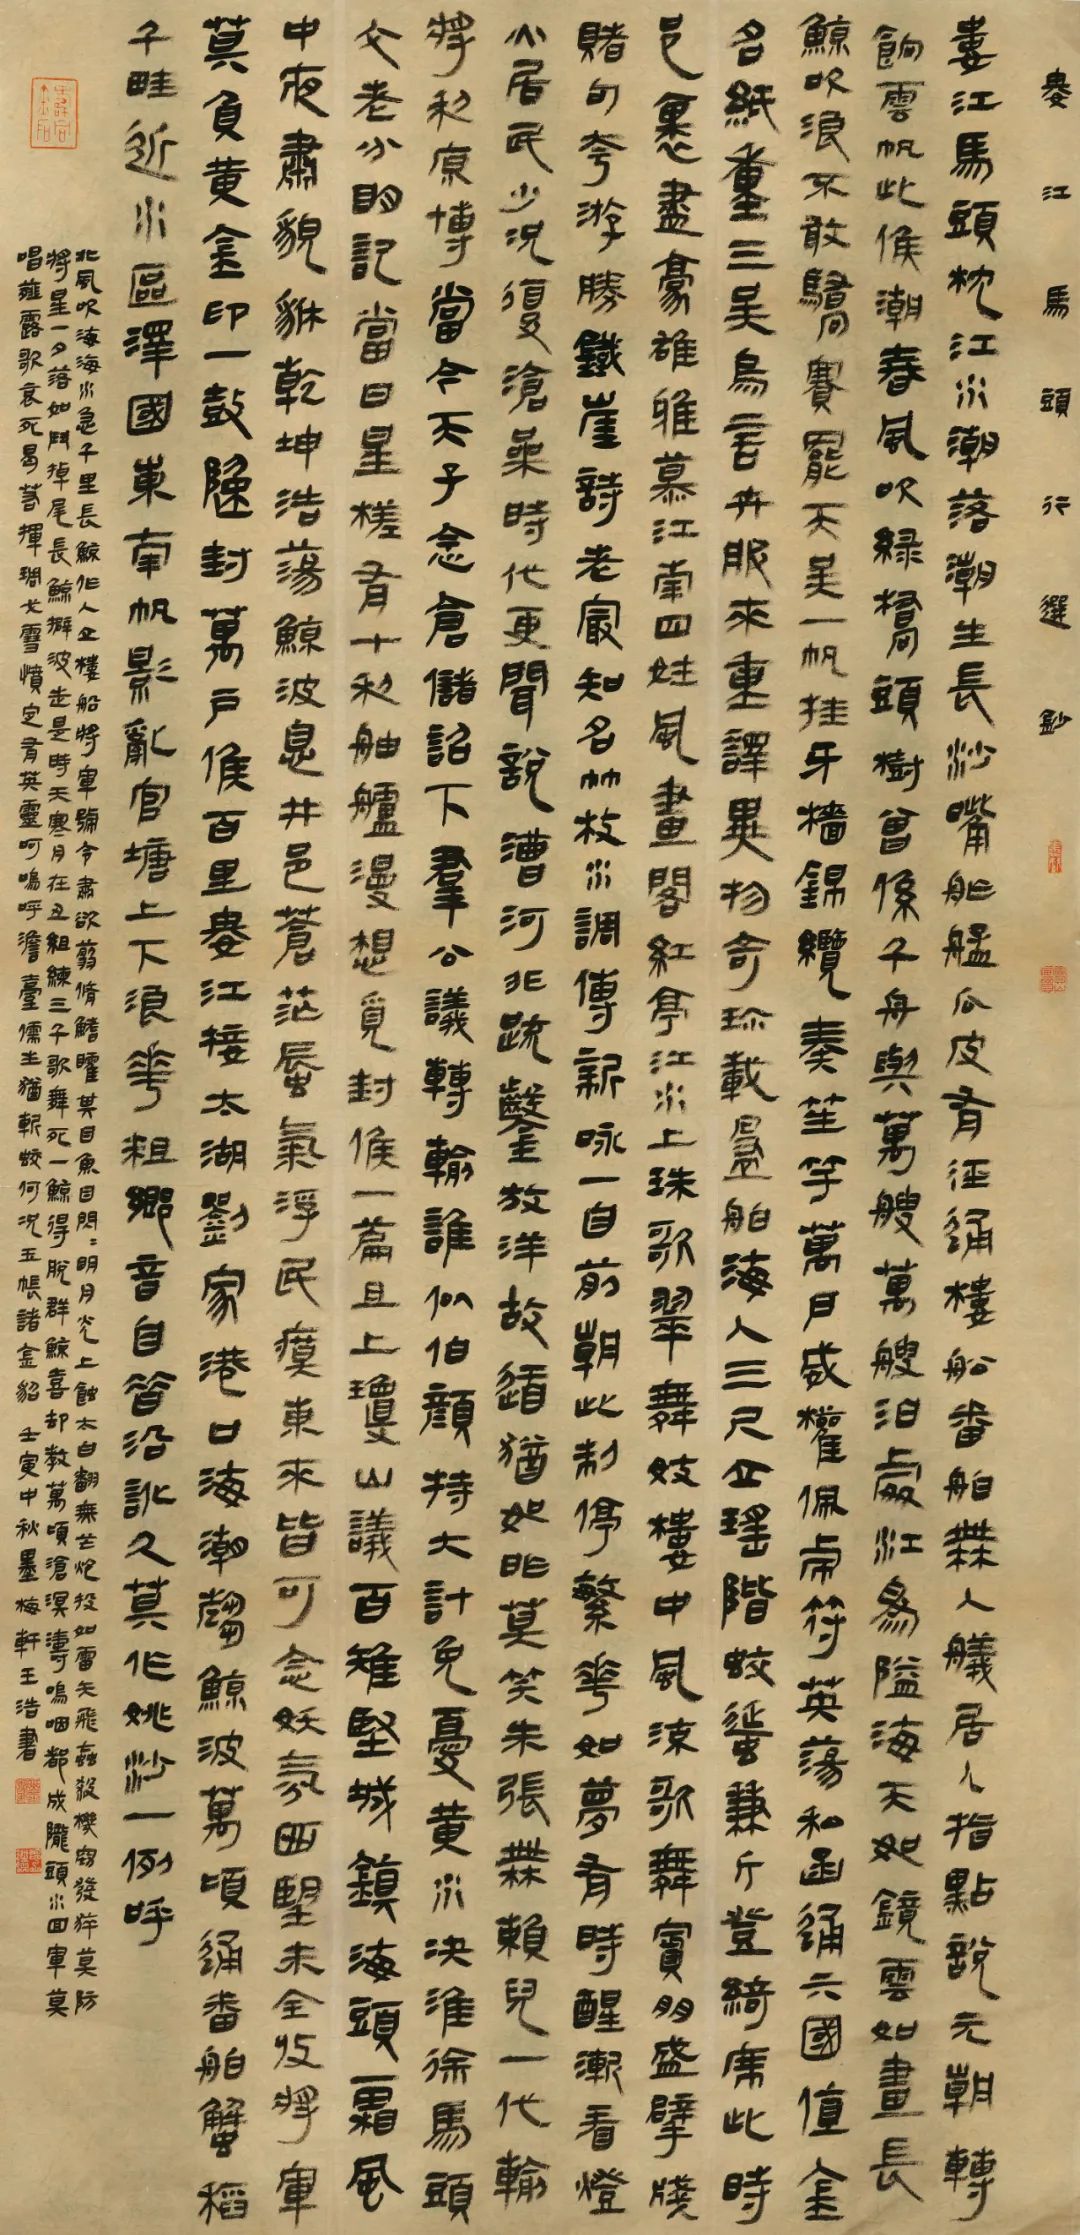 婁江馬頭行選鈔
婁江馬頭枕江水潮落潮生長沙嘴舴艋瓜皮有徑通樓船番舶無人艤居人指點說元朝轉
餉雲帆此候潮春風吹綠橋頭樹曾係千舟與萬艘萬艘泊處江為隘海天如鏡雲如畫長
鯨吹浪不敢驕賽罷天吳一帆挂牙檣錦纜奏笙竽萬戶威權佩虎符英蕩和函通六國值金
名紙重三吳鳥言卉服來重譯異物奇珍載舶海人三尺立瑤階蛟蜑兼斤登綺席此時
邑裏盡豪雄雅慕江南四姓風畫閣紅亭江水上珠歌翠舞妓樓中風流歌舞賓朋盛擘牋
賭句夸游勝鐵崖詩老最知名竹枝水調傳新詠一自前朝此制停繁華如夢有時醒漸看燈
火居民少況復滄桑時代更聞說漕河非疏鑿放洋故道猶如昨莫笑朱張無賴兒一代輸
將利原博當今天子念倉儲詔下羣公議轉輸誰似伯顏持大計免憂黃水決淮徐馬頭
父老分明記當日星槎有十利舳艫漫想覓封侯一篇且上瓊山議百雉堅城鎮海頭霜風
中夜肅貌貅乾坤浩蕩鯨波息井邑蒼茫蜃氣浮民瘼東來皆可念妖氛西望未全收將軍
莫負黃金印一鼓隃封萬戶侯百里婁江接太湖劉家港口海潮趨鯨波萬頃通番舶蟹稻
千畦近水區澤國東南帆影亂官塘上下浪華粗鄉音自昔沿訛久莫作姚沙一例呼
北風吹海海水急千里長鯨作人立樓船將軍號令肅欲剪脩鰭矐其目魚目閃閃明月光上蝕太白翻無芒炮投如雷矢飛蝱殺機窃發猝莫防
將星一夕落如斗掉尾長鯨擗波走是時天寒月在丑組練三千歌舞死一鯨得脫群鯨喜却教萬頃滄溟濤嗚咽都成隴頭水回軍莫
唱薤露歌哀死曷若揮琱戈靈憤定有英靈呵嗚呼澹臺儒生猶斬蛟何況五帳諸金貂 壬寅中秋墨梅軒王浩書